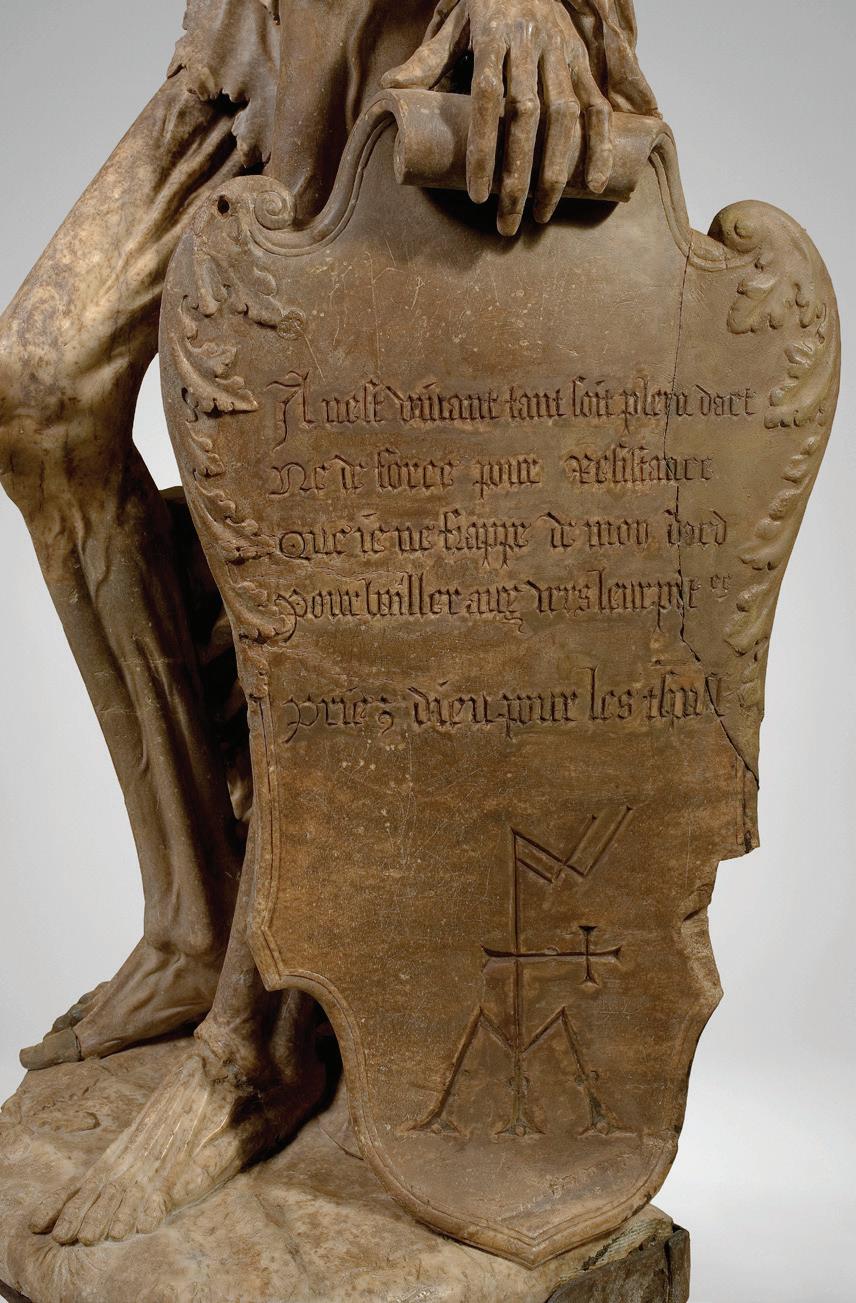 Il nest vivant tant soit plein dart
Ne de force pour resistance
Que ie ne frappe de mon dard
Pour bailler aux vers leur pitce
priez dieu pour les